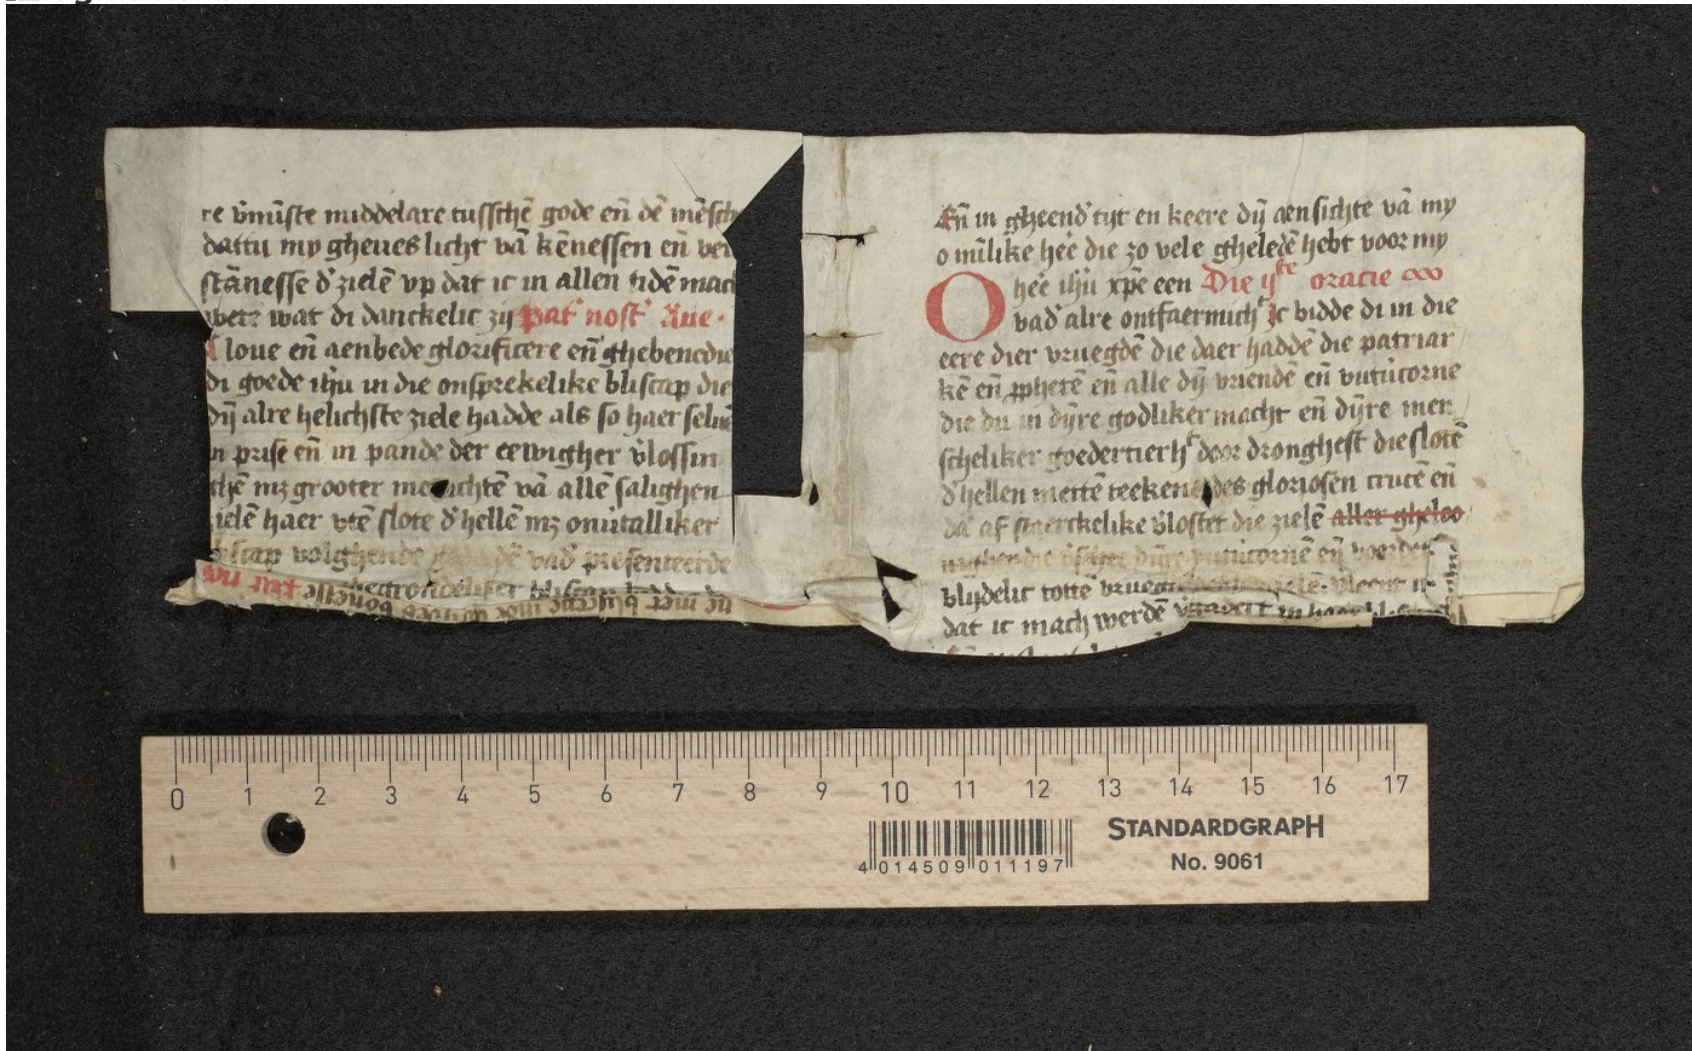 re v̄mīnste middelare tusschē gode eñ dē mēsch
dattu my gheues licht vā kēnessen eñ ver
stānesse d' zielē vp dat ic in allen tidē mach
wat di danckelic zij pat' nost' Aue·
loue eñ aenbede glorificere eñ ghebenedie
di goede ihū in die onsprekelike bliscap die
dij alre helichste ziele hadde als so haer seluē
in prise eñ in pande der eewigher v̓lossin
ghē mꝫ grooter vā allē salighen
zielē haer vtē slote d' hellē mꝫ onūtalliker
bliscap volghende vad' presenteerde
grondeliker bliscap
Eñ in gheend' tijt en keere dij aensichte vā my
o mīlike hēe die zo vele gheledē hebt voor my
O hēe ihū xp̄e een Die ijste oracie
vad' alre ontfaermich^t Ic bidde di in die
eere dier vruegdē die daer haddē die patriar
kē eñ ꝓphetē eñ alle dij vriendē eñ vutūcorne
die du in dijre godliker macht eñ dijre men
scheliker goedertierh^t door dronghest die slotē
d' hellen mettē teekene des gloriosen crucē eñ
daer af staerckelike v̓lostet die zielē aller gheloo
dijre vutūcornē eñ voerdes
blijdelic tottē
dat ic mach werdē
4 014509 011197
0 1 2 3 4 5 6 7 8 9 10 11 12 13 14 15 16 17
STANDARDGRAPH
No. 9061